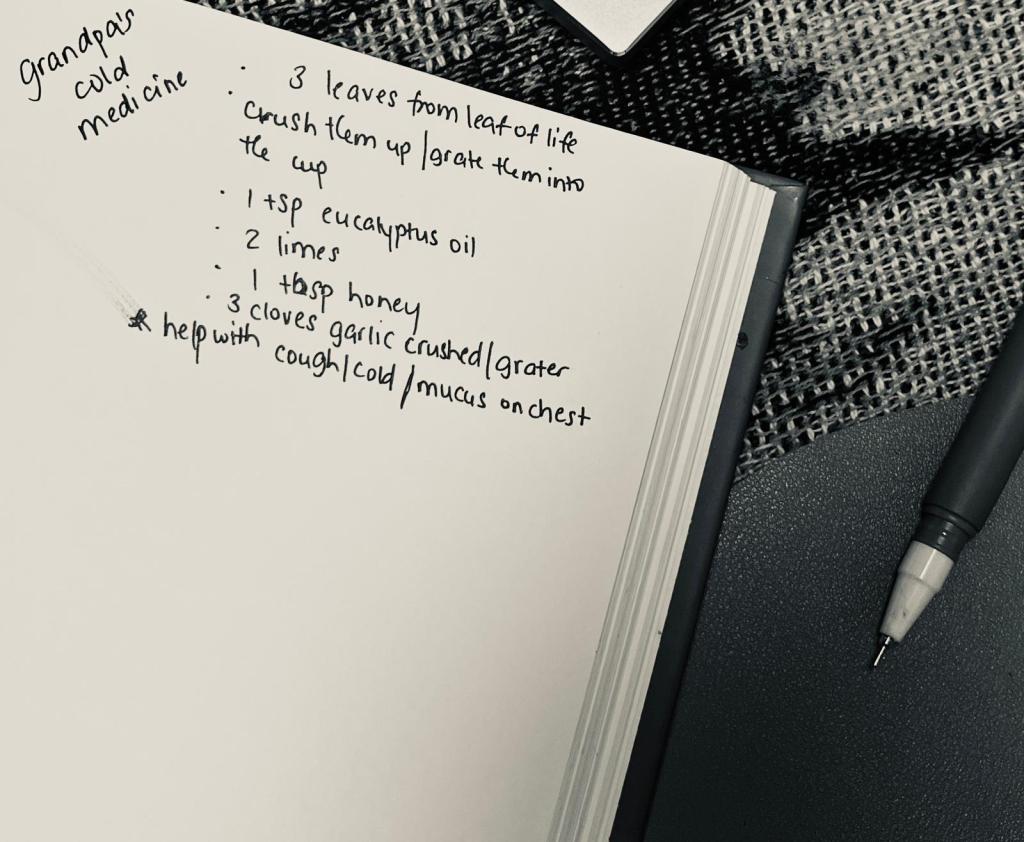 grandpa's
cold
medicine
• 3 leaves from leaf of life
• crush them up / grate them into
the cup
• 1 tsp eucalyptus oil
• 2 limes
• 1 tbsp honey
• 3 cloves garlic crushed/grater
* help with cough/cold/mucus on chest